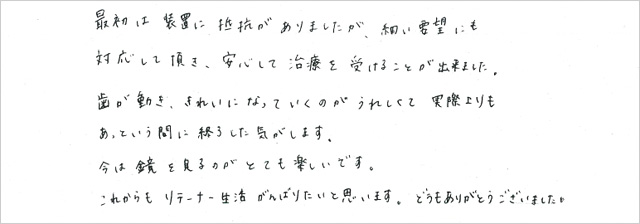 最初は装置に抵抗がありましたが、細い要望にも
対応して頂き、安心して治療を受けることが出来ました。
歯が動き、きれいになっていくのがうれしくて実際よりも
あっという間に終了した気がします。
今は鏡を見るのがとても楽しいです。
これからもリテーナー生活がんばりたいと思います。どうもありがとうございました。